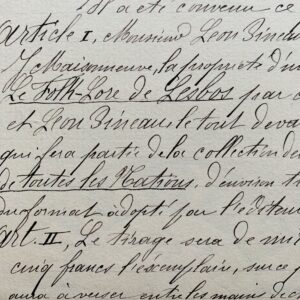 Il a été convenu ce
article I, Monsieur Léon Pineau
J. Maisonneuve, la propriété d'un
Le Folk-Lore de Lesbos par
et Léon Pineau, le tout devant
qui fera partie de la collection des
de toutes les Nations, d'environ
du format adopté par l'éditeur
art. II, Le tirage sera de
cinq francs l'exemplaire, sur
aura à verser entre les mains de